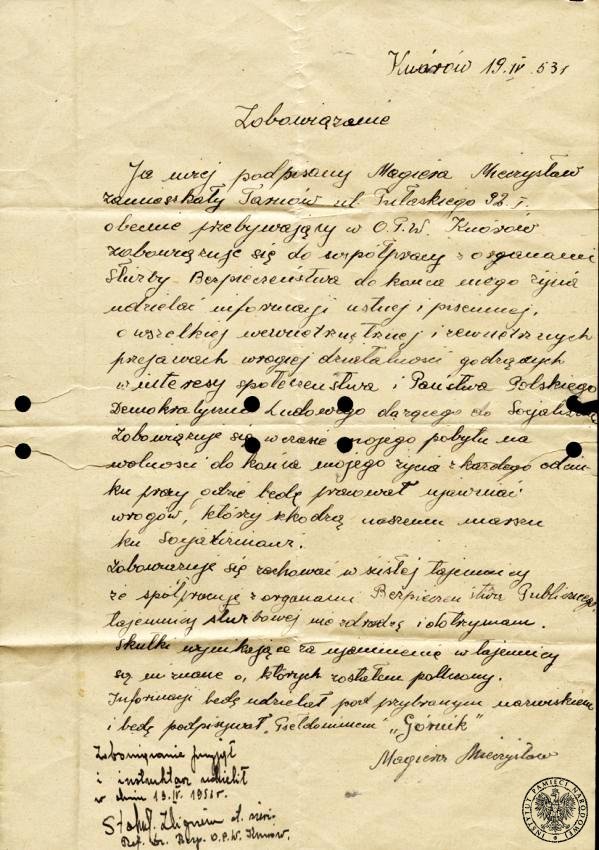 Knurów 19 IV 53 r
Zobowiązanie
Ja niżej podpisany Magiera Mieczysław
zamieszkały Tarnów ul. Pułaskiego 92
obecnie przebywający w O.P.W. Knurów
zobowiązuję się do współpracy z organami
Służby Bezpieczeństwa do końca mego życia
udzielać informacji ustnej i pisemnej,
o wszelkiej wewnętrznej i zewnętrznych
przejawach wrogiej działalności godzących
w interesy społeczeństwa i Państwa Polskiego
Demokratyczno Ludowego dążącego do Socjalizmu
Zobowiązuję się w czasie mojego pobytu na
wolności do końca mojego życia z każdego odcin-
ku pracy gdzie będę pracował ujawniać
wrogów, którzy szkodzą naszemu marszu
ku Socjalizmowi.
Zobowiązuję się zachować w ścisłej tajemnicy
że spółpracuję z organami Bezpieczeństwa Publicznego,
tajemnicy służbowej nie zdradzę i dotrzymam.
Skutki wynikające za ujawnienie w tajemnicy
są mi znane o, których zostałem pouczony.
Informacji będę udzielał pod przybranym nazwiskiem
i będę podpisywał „Górnik"
Magiera Mieczysław
Zobowiązanie przyjął
i instruktaż udzielił
w dniu 19.IV.1953 r.
Zbigniew
O.P.W. Knurów
INSTYTUT PAMIĘCI NARODOWEJ